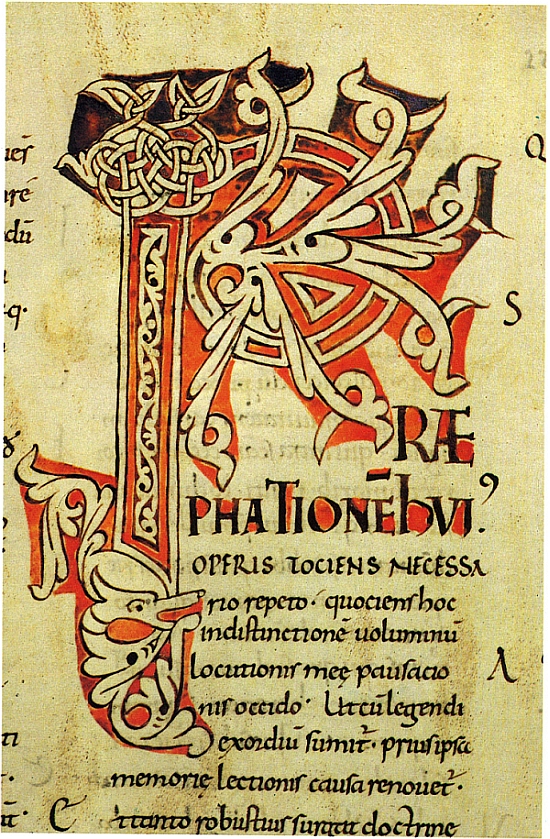 PRÆ
PHATIONĒ hVI⁹.
OPERIS TOCIENS NECESSA
rio repeto · quociens hoc
indistinctionē uoluminū
locutionis meę pausacio
nis occido · Ut cū legendi
exordiū sumit᷑ · prius ipsa
memorię lectionis causa renouet᷑ ·
tanto robustius surgat doctrinę
Q
S
A
C